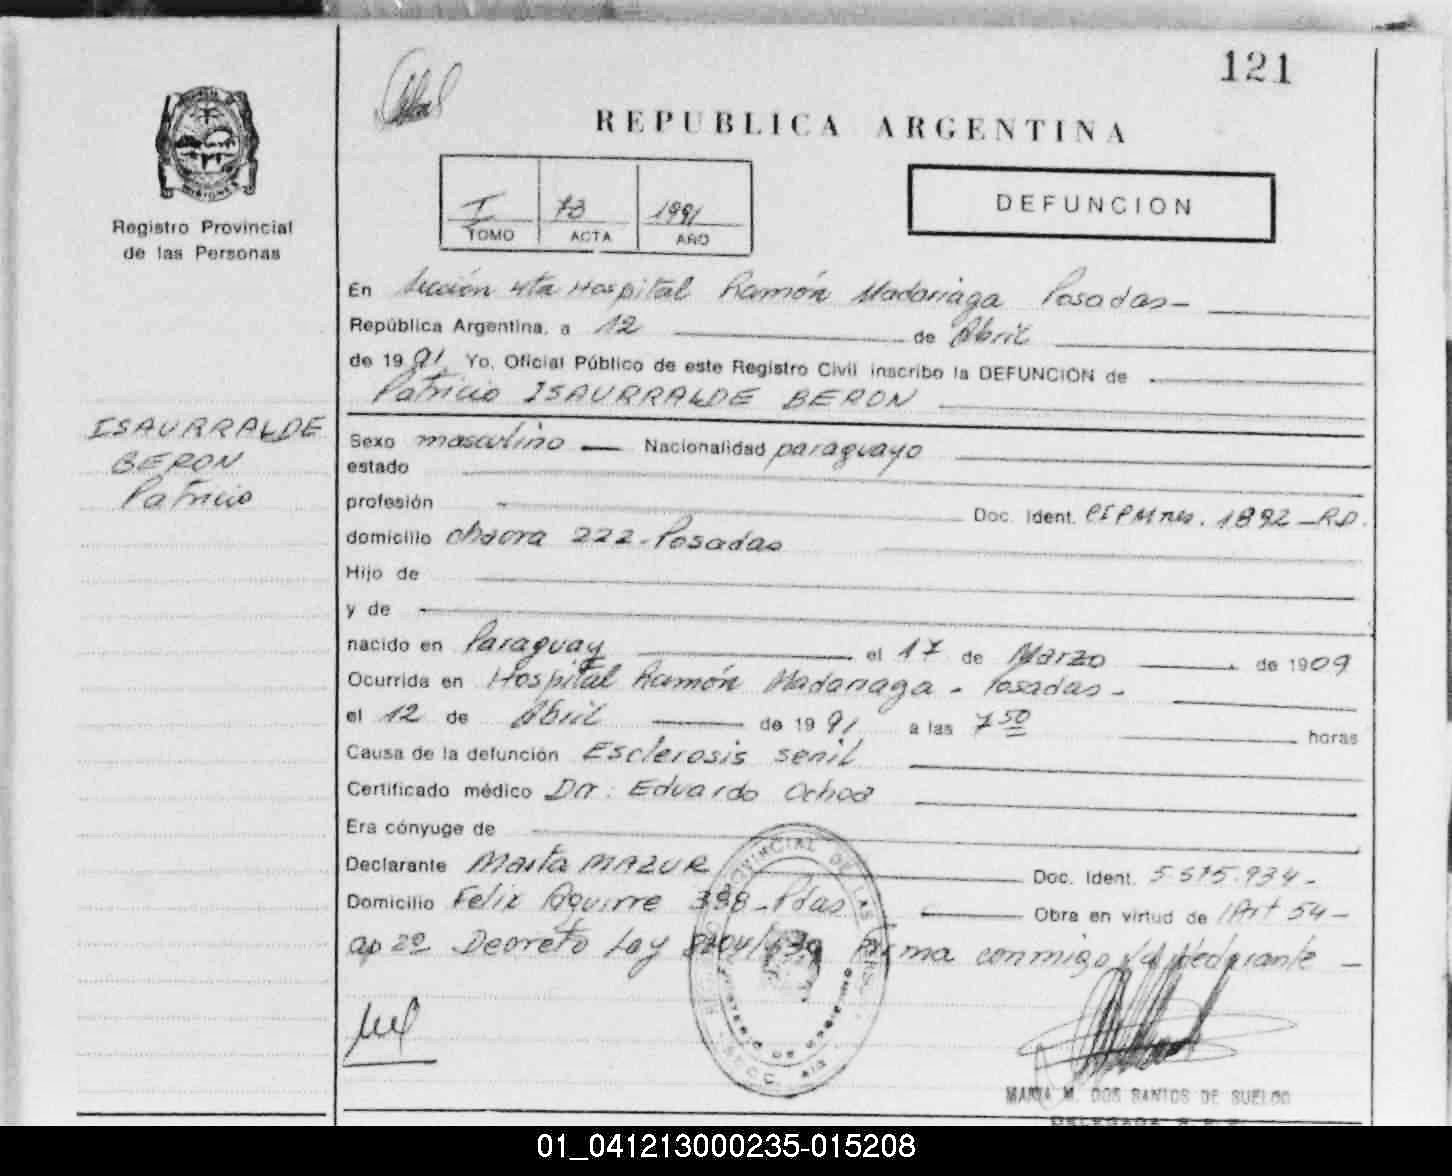 121
REPUBLICA ARGENTINA
MISIONES
Registro Provincial
de las Personas
I 73 1991
TOMO ACTA AÑO
DEFUNCION
En Sección 4ta Hospital Ramón Madariaga Posadas—
República Argentina, a 12 de Abril
de 1991. Yo, Oficial Público de este Registro Civil inscribo la DEFUNCION de
Patricio ISAURRALDE BERON
ISAURRALDE
BERON
Patricio
Sexo masculino — Nacionalidad paraguayo
estado
profesión Doc. Ident. 1892—R.P.
domicilio chacra 222-Posadas
Hijo de
y de
nacido en Paraguay el 17 de Marzo de 1909
Ocurrida en Hospital Ramón Madariaga - Posadas -
el 12 de Abril de 1991 a las 7 50 horas
Causa de la defunción Esclerosis senil
Certificado médico Dr: Eduardo Ochoa
Era cónyuge de
Declarante Marta MAZUR Doc. Ident. 5.515.934-
Domicilio Felix Aguirre 398-Pdas Obra en virtud de Art 54-
ap 2º Decreto Ley Firma conmigo
MARIA M. DOS SANTOS DE SUELDO
DELEGADA
01_041213000235-015208